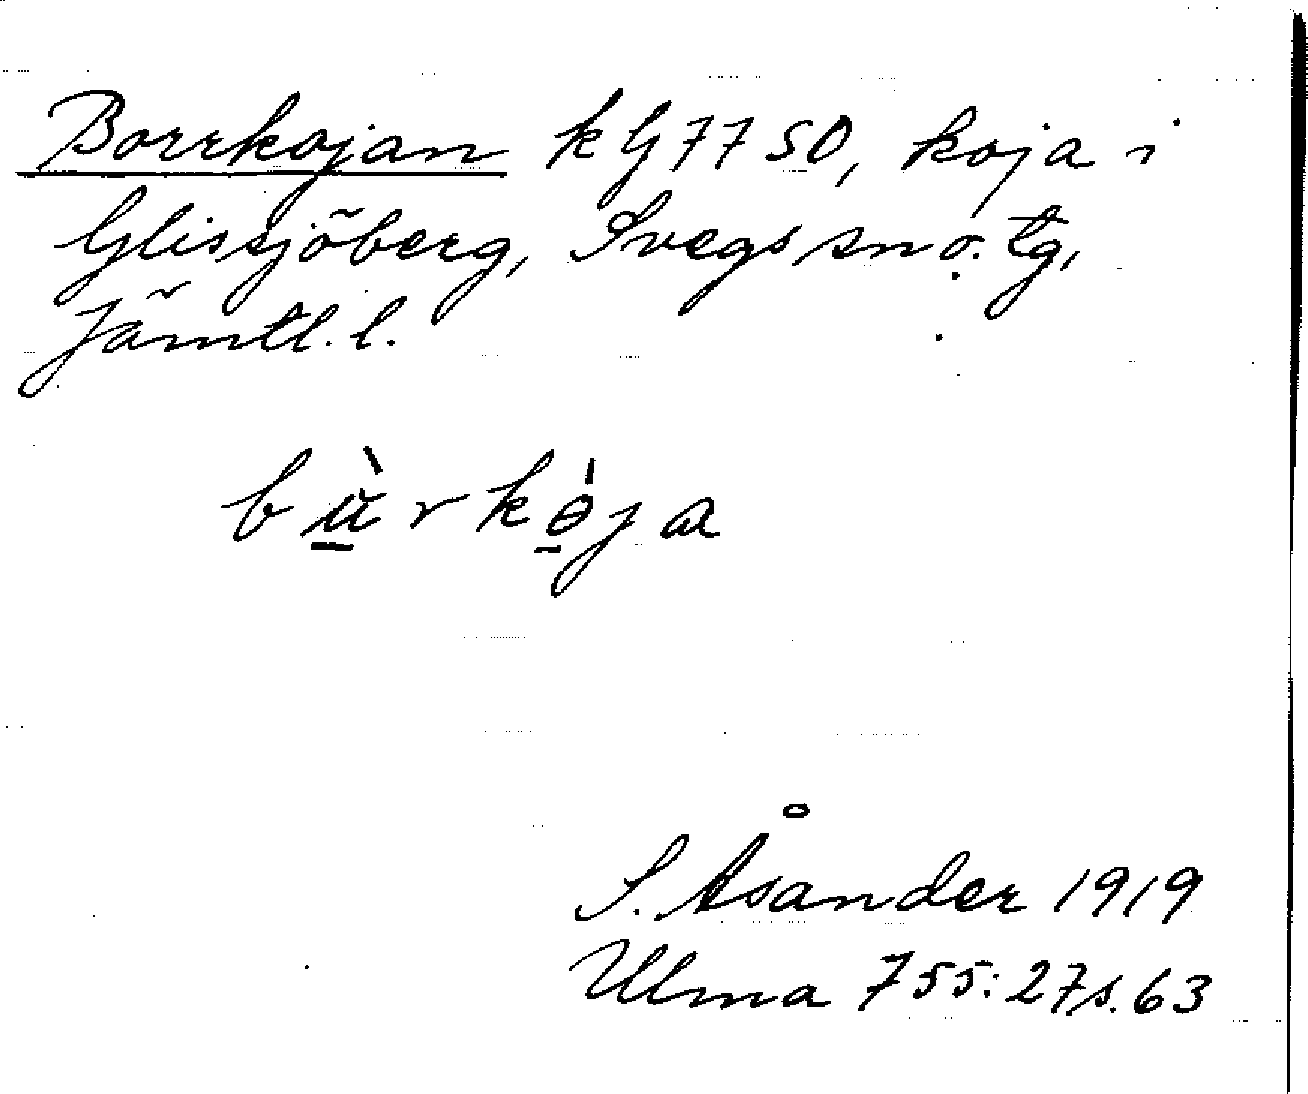 Borrkojan kG 7750, koja i
Glissjöberg, Svegs sn o. tg,
Jämtl. l.
bù̲rkɵ̲̍ja
S. Åsander 1919
Ulma 755:27 s. 63